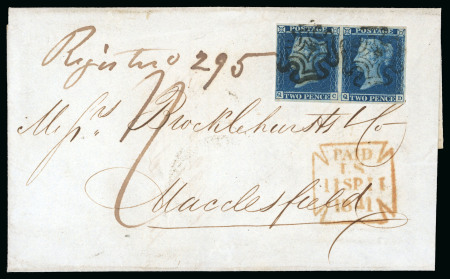 Registered 295
TWO PENCE
TWO PENCE
Messrs Brocklehurst & Co
Macclesfield
PAID
11 SP 11
1841